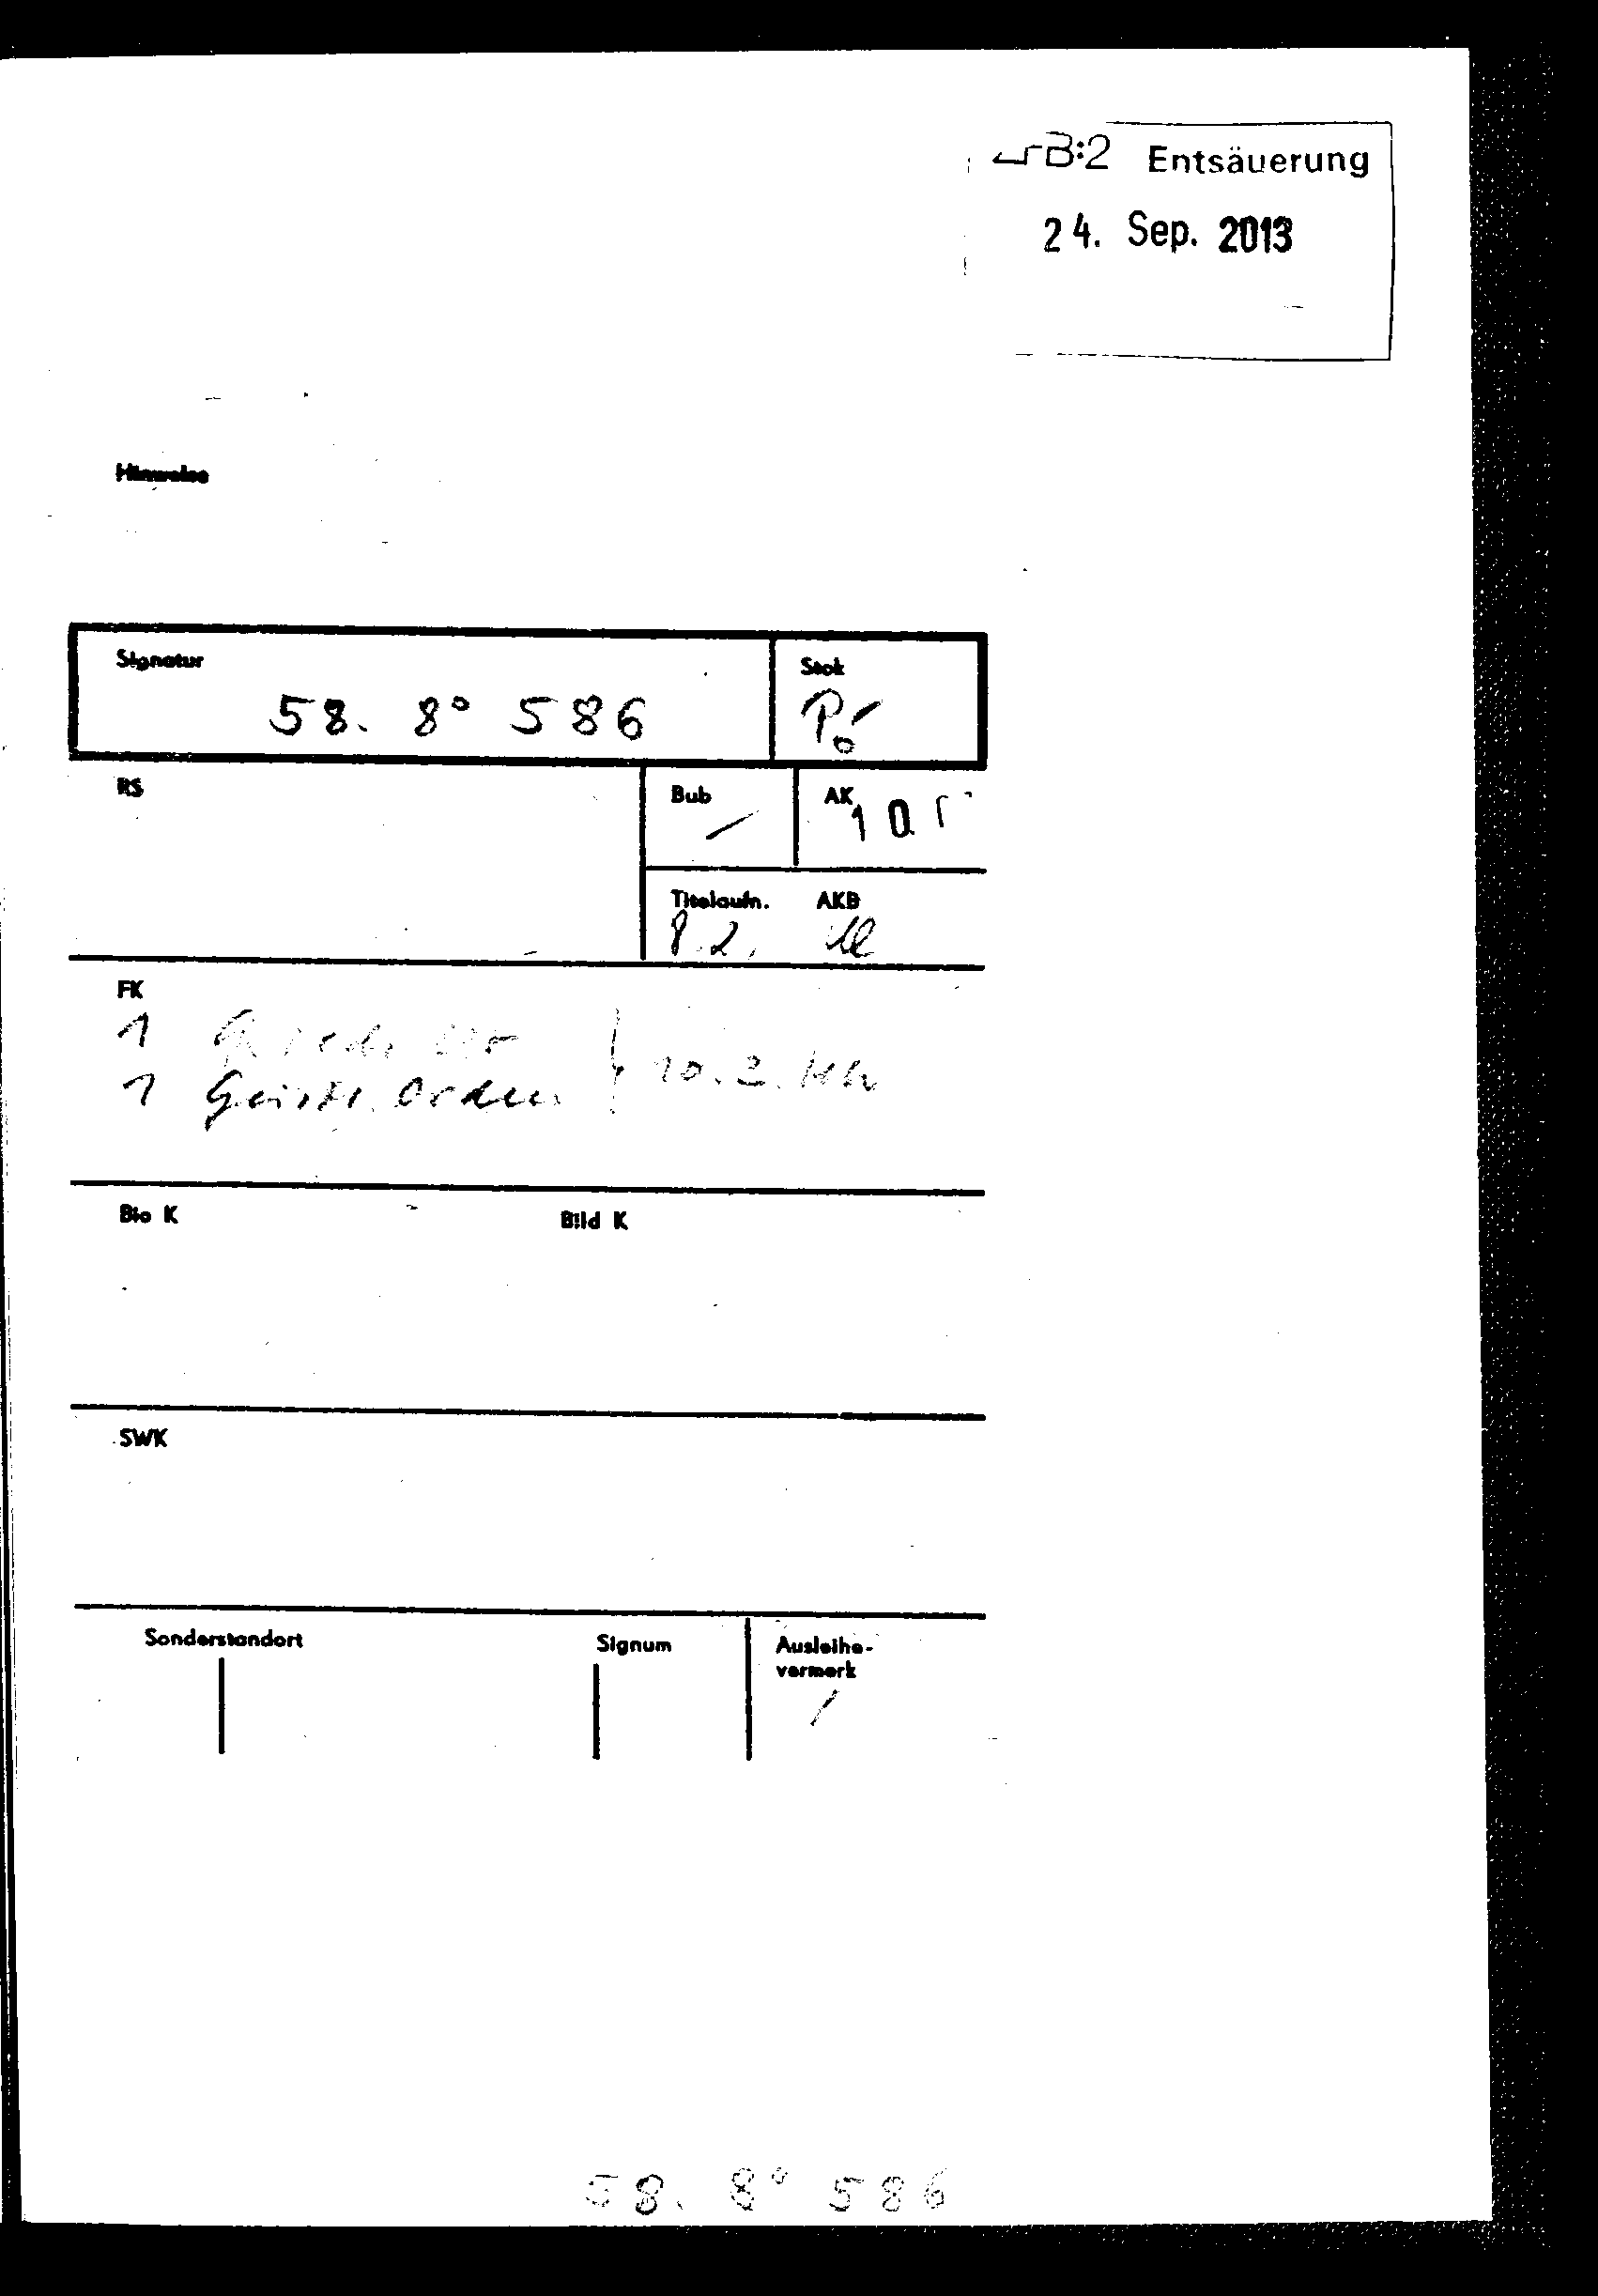 Entsäuerung
24. Sep. 2013
Hinweise
Signatur
Stok
58. 8° 586
RS
Bub
AK
Titelaufn.
AKB
8.2.
FK
1
1 Geistl. Orden
10.2.
Bio K
Bild K
SWK
Sonderstandort
Signum
Ausleihe-
vermerk
58. 8° 586